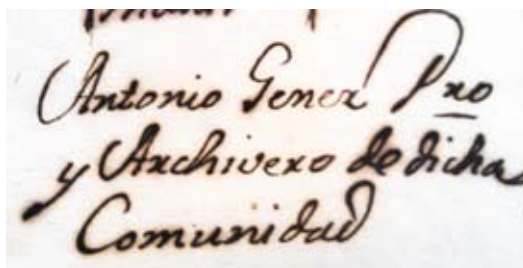 Antonio Gener Pro
y Archivero de dicha
Comunidad